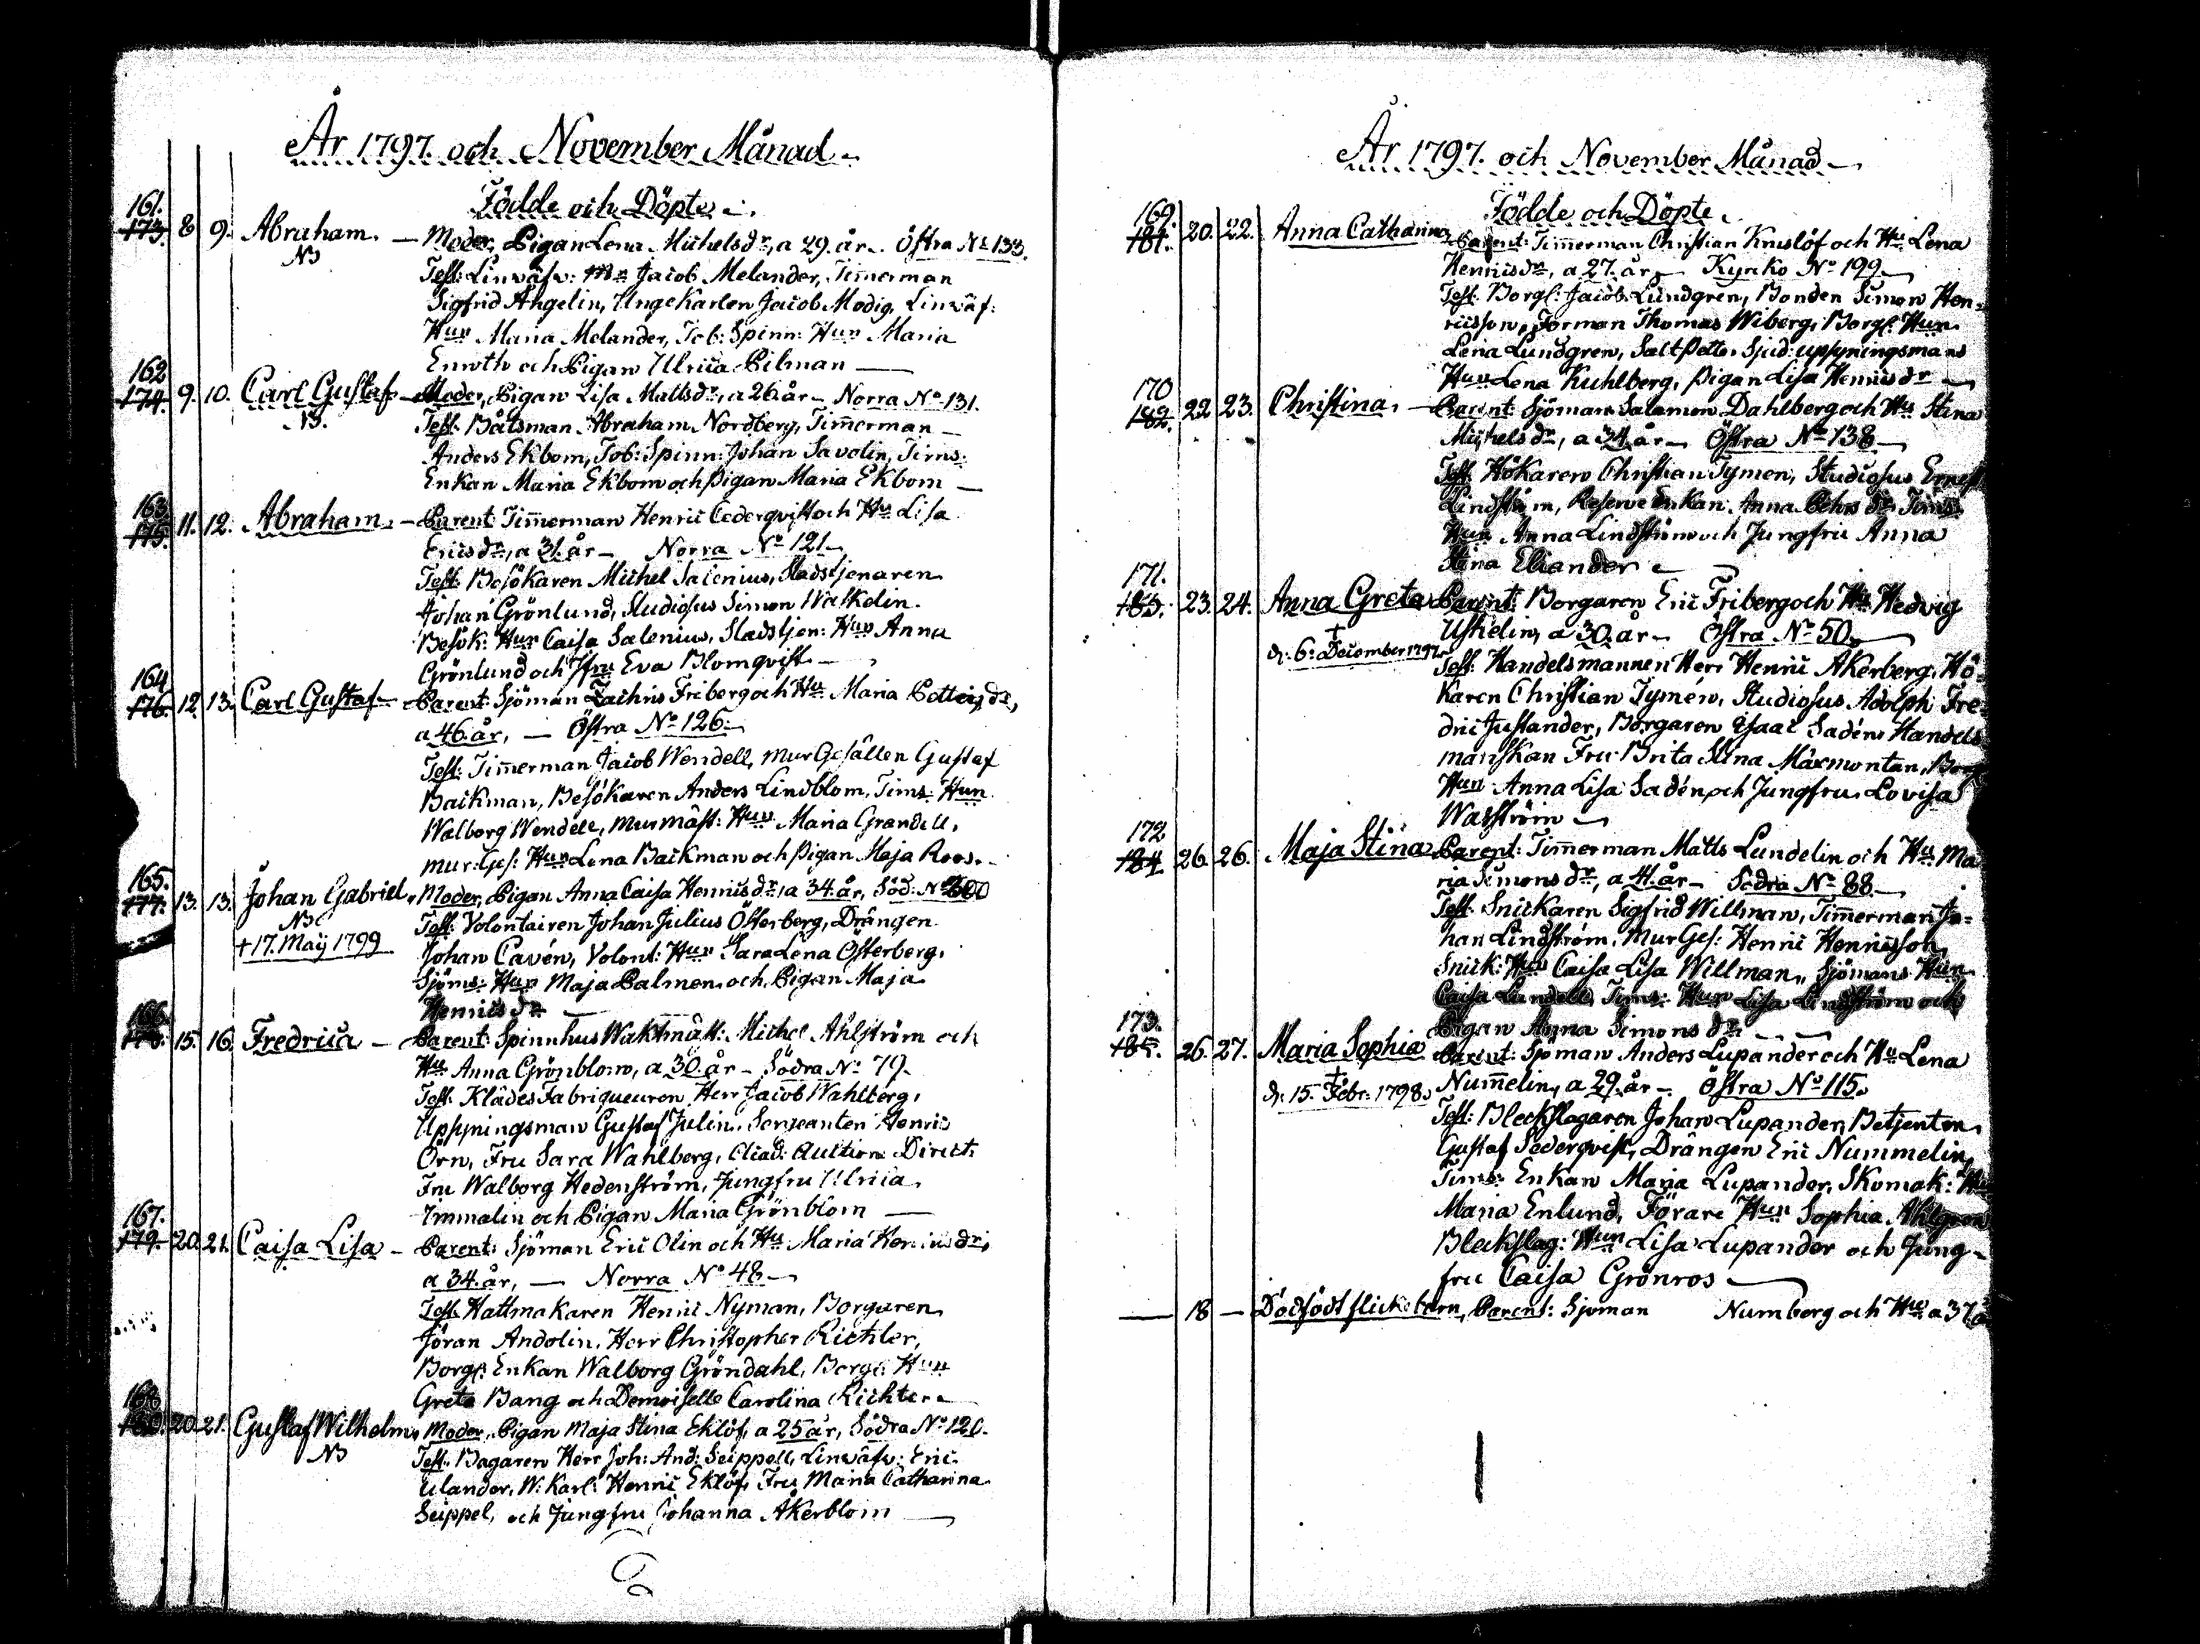 År 1797. och November Månad
Födde och Döpte
161.
173. 8 9. Abraham. — Moder, Pigan Lena Michelsdr, a 29. år. Östra No 133.
NB Test: Linväfv: Mr Jacob Melander, Tim̄erman
Sigfrid Angelin, Unge Karlen Jacob Modig, Linväf:
Hun Maria Melander, Tob: Spinn: Hun Maria
Enroth och Pigan Ulrica Pilman —
162
174. 9. 10. Carl Gustaf — Moder, Pigan Lisa Mattsdr, a 26 år — Norra No 131.
NB. Test. Båtsman Abraham Nordberg, Tim̄erman —
Anders Ekbom, Tob: Spinn: Johan Savolin, Tims:
Enkan Maria Ekbom och Pigan Maria Ekbom —
163
175. 11. 12. Abraham. — Parent: Tim̄erman Henric Cederqvist och Hu Lisa
Ericsdr, a 31. år — Norra No 121 —
Test: Besökaren Michel Salenius, Stadstjenaren
Johan Grönlund, Studiosus Simon Walkelin.
Besök: Hun Caisa Salenius, Stadstjen: Hun Anna
Grönlund och Jfru Eva Blomqvist —
164
176. 12 13. Carl Gustaf — Parent: Sjöman Zachris Friberg och Hu Maria Pettersdr,
a 46. år, — Östra No 126.
Test: Tim̄erman Jacob Wendell, Mur Gesällen Gustaf
Backman, Besökaren Anders Lindblom, Tims: Hun
Walborg Wendell, Murmäst: Hun Maria Grandell,
Mur: Ges: Hun Lena Backman och Pigan Maja Roos.
165.
177. 13. 13. Johan Gabriel, Moder, Pigan Anna Caisa Henricsdr, a 34. år, Söd: No
NB Test: Volontairen Johan Julius Österberg, Drängen
+ 17. Maij 1799 Johan Cavén, Volont: Hun Sara Lena Österberg,
Sjöms: Hun Maja Palmen och Pigan Maja
Henricsdr —
166.
178. 15. 16. Fredrica — Parent: Spinnhus Waktmäst: Michel Ahlström och
Hu Anna Grönblom, a 30. år — Södra No 79.
Test: Klädes Fabriqueuren Herr Jacob Wahlberg,
Uppyningsman Gustaf Julin, Sergeanten Henric
Örn, Fru Sara Wahlberg, Acad: Auction: Direct:
Fru Walborg Hedenström, Jungfru Ulrica
Immalin och Pigan Maria Grönblom —
167.
179. 20. 21. Caisa Lisa — Parent: Sjöman Eric Olin och Hu Maria Henricsdr,
a 34. år, — Norra No 48 —
Test. Hattmakaren Henric Nyman, Borgaren
Jöran Andolin, Herr Christopher Richter,
Borgs: Enkan Walborg Gröndahl, Borgs: Hun
Greta Bang och Demoiselle Carolina Richter
168
180. 20. 21. Gustaf Wilhelm, Moder, Pigan Maja Stina Eklöf, a 25 år, Södra No 120.
NB Test: Bagaren Herr Joh: And: Seippell, Linväfv: Eric
Ulander, W: Karl: Henric Eklöf, Fru Maria Catharina
Seippel, och Jungfru Johanna Åkerblom —
År 1797. och November Månad —
Födde och Döpte
169.
181. 20. 22. Anna Catharina, Parent: Tim̄erman Christian Knuslöf och Hu Lena
Henricsdr, a 27. år — Kyrko No 199 —
Test: Borgs: Jacob Lundgren, Bonden Simon Hen-
ricsson, Forman Thomas Wiberg, Borgs: Hun
Lena Lundgren, Saltpetter Sjud: uppyningsmans
Hun Lena Kuhlberg, Pigan Lisa Henricsdr —
170
182. 22 23. Christina, — Parent: Sjöman Salomon Dahlberg och Hu Stina
Michelsdr, a 34. år — Östra No 138 —
Test. Hökaren Christian Tymen, Studiosus Ernest
Lindström, Reserve Enkan Anna Pehrsdr Tims:
Hun Anna Lindström och Jungfru Anna
Stina Eliander
171.
183. 23. 24. Anna Greta Parent: Borgaren Eric Friberg och Hu Hedvig
+ Ushelin, a 30. år — Östra No 50.
d. 6. December 1797. Test: Handelsmannen Herr Henric Åkerberg, Hö-
karen Christian Tymén, Studiosus Adolph Fre-
dric Justander, Borgaren Isaac Sadén, Handels
manskan Fru Brita Stina Märmontan, Borgs
Hun Anna Lisa Sadén och Jungfru Lovisa
Wasström —
172
184. 26. 26. Maja Stina Parent: Tim̄erman Matts Lundelin och Hu Ma
ria Simonsdr, a 41. år — Södra No 88 —
Test. Snickaren Sigfrid Willman, Tim̄erman Jo-
han Lindström, Mur Ges: Henric Henricsson,
Snick: Hun Caisa Lisa Willman, Sjömans Hun
Caisa Lundell, Tims: Hun Lisa Lindström och
Pigan Anna Simonsdr —
173.
185. 26. 27. Maria Sophia Parent: Sjöman Anders Lupander och Hu Lena
+ Num̄elin, a 29. år — Östra No 115.
d. 15. Febr: 1798. Test: Bleckslagaren Johan Lupander, Betjenten
Gustaf Sederqvist, Drängen Eric Nummelin,
Tims: Enkan Maria Lupander, Skomak: Hu
Maria Enlund, Förare Hun Sophia Ahlgren
Bleckslag: Hun Lisa Lupander och Jung-
fru Caisa Grönros —
— 18 — Dödfödt flickebarn, Parent: Sjöman Numberg och Hu a 37 å